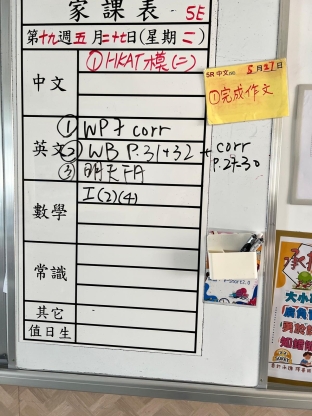 家課表 5E
第十九週五月二十七日(星期二)
中文 ① HKAT 模(二)
5R 中文 5月27日
①完成作文
英文 ① WP7 corr
② WB P.31+32 + corr P.27-30
③ 明天FA
數學 I(2)(4)
常識
其它
值日生
承擔
大小